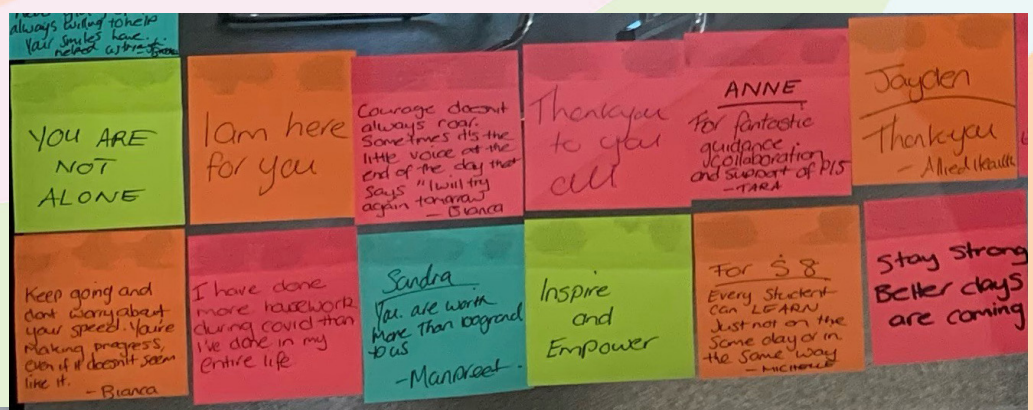 always willing to help
Your smiles have
helped us
YOU ARE
NOT
ALONE
I am here
for you
Courage doesnt
always roar.
Sometimes its the
little voice at the
end of the day that
says "I will try
again tomorrow
- Bianca
Thankyou
to you
all
ANNE
For fantastic
guidance
collaboration
and support of PLS
- TARA
Jayden
Thankyou
- Allied Health
Keep going and
dont worry about
your speed. You're
Making progress,
even if it doesn't seem
like it.
- Bianca
I have done
more housework
during covid than
I've done in my
entire life.
Sandra
You are worth
More Than 100grand
to us
- Manpreet.
Inspire
and
Empower
For S8
Every Student
can LEARN
Just not on the
Same day or in
the Same way
- MICHELLE
Stay Strong
Better days
are coming